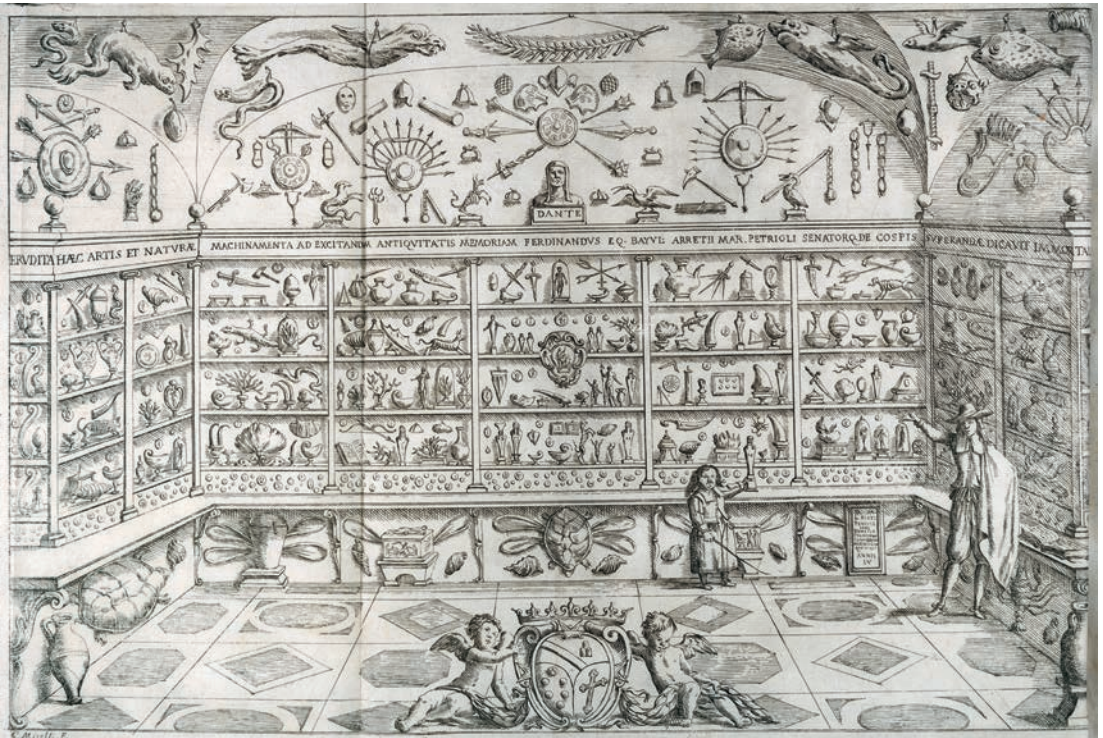 DANTE
ERVDITA HÆC ARTIS ET NATVRÆ MACHINAMENTA AD EXCITANDA ANTIQVITATIS MEMORIAM FERDINANDVS EQ. BAYVL: ARRETII MAR. PETRIOLI SENATORQ. DE COSPIS SVPERANDÆ DICAVIT